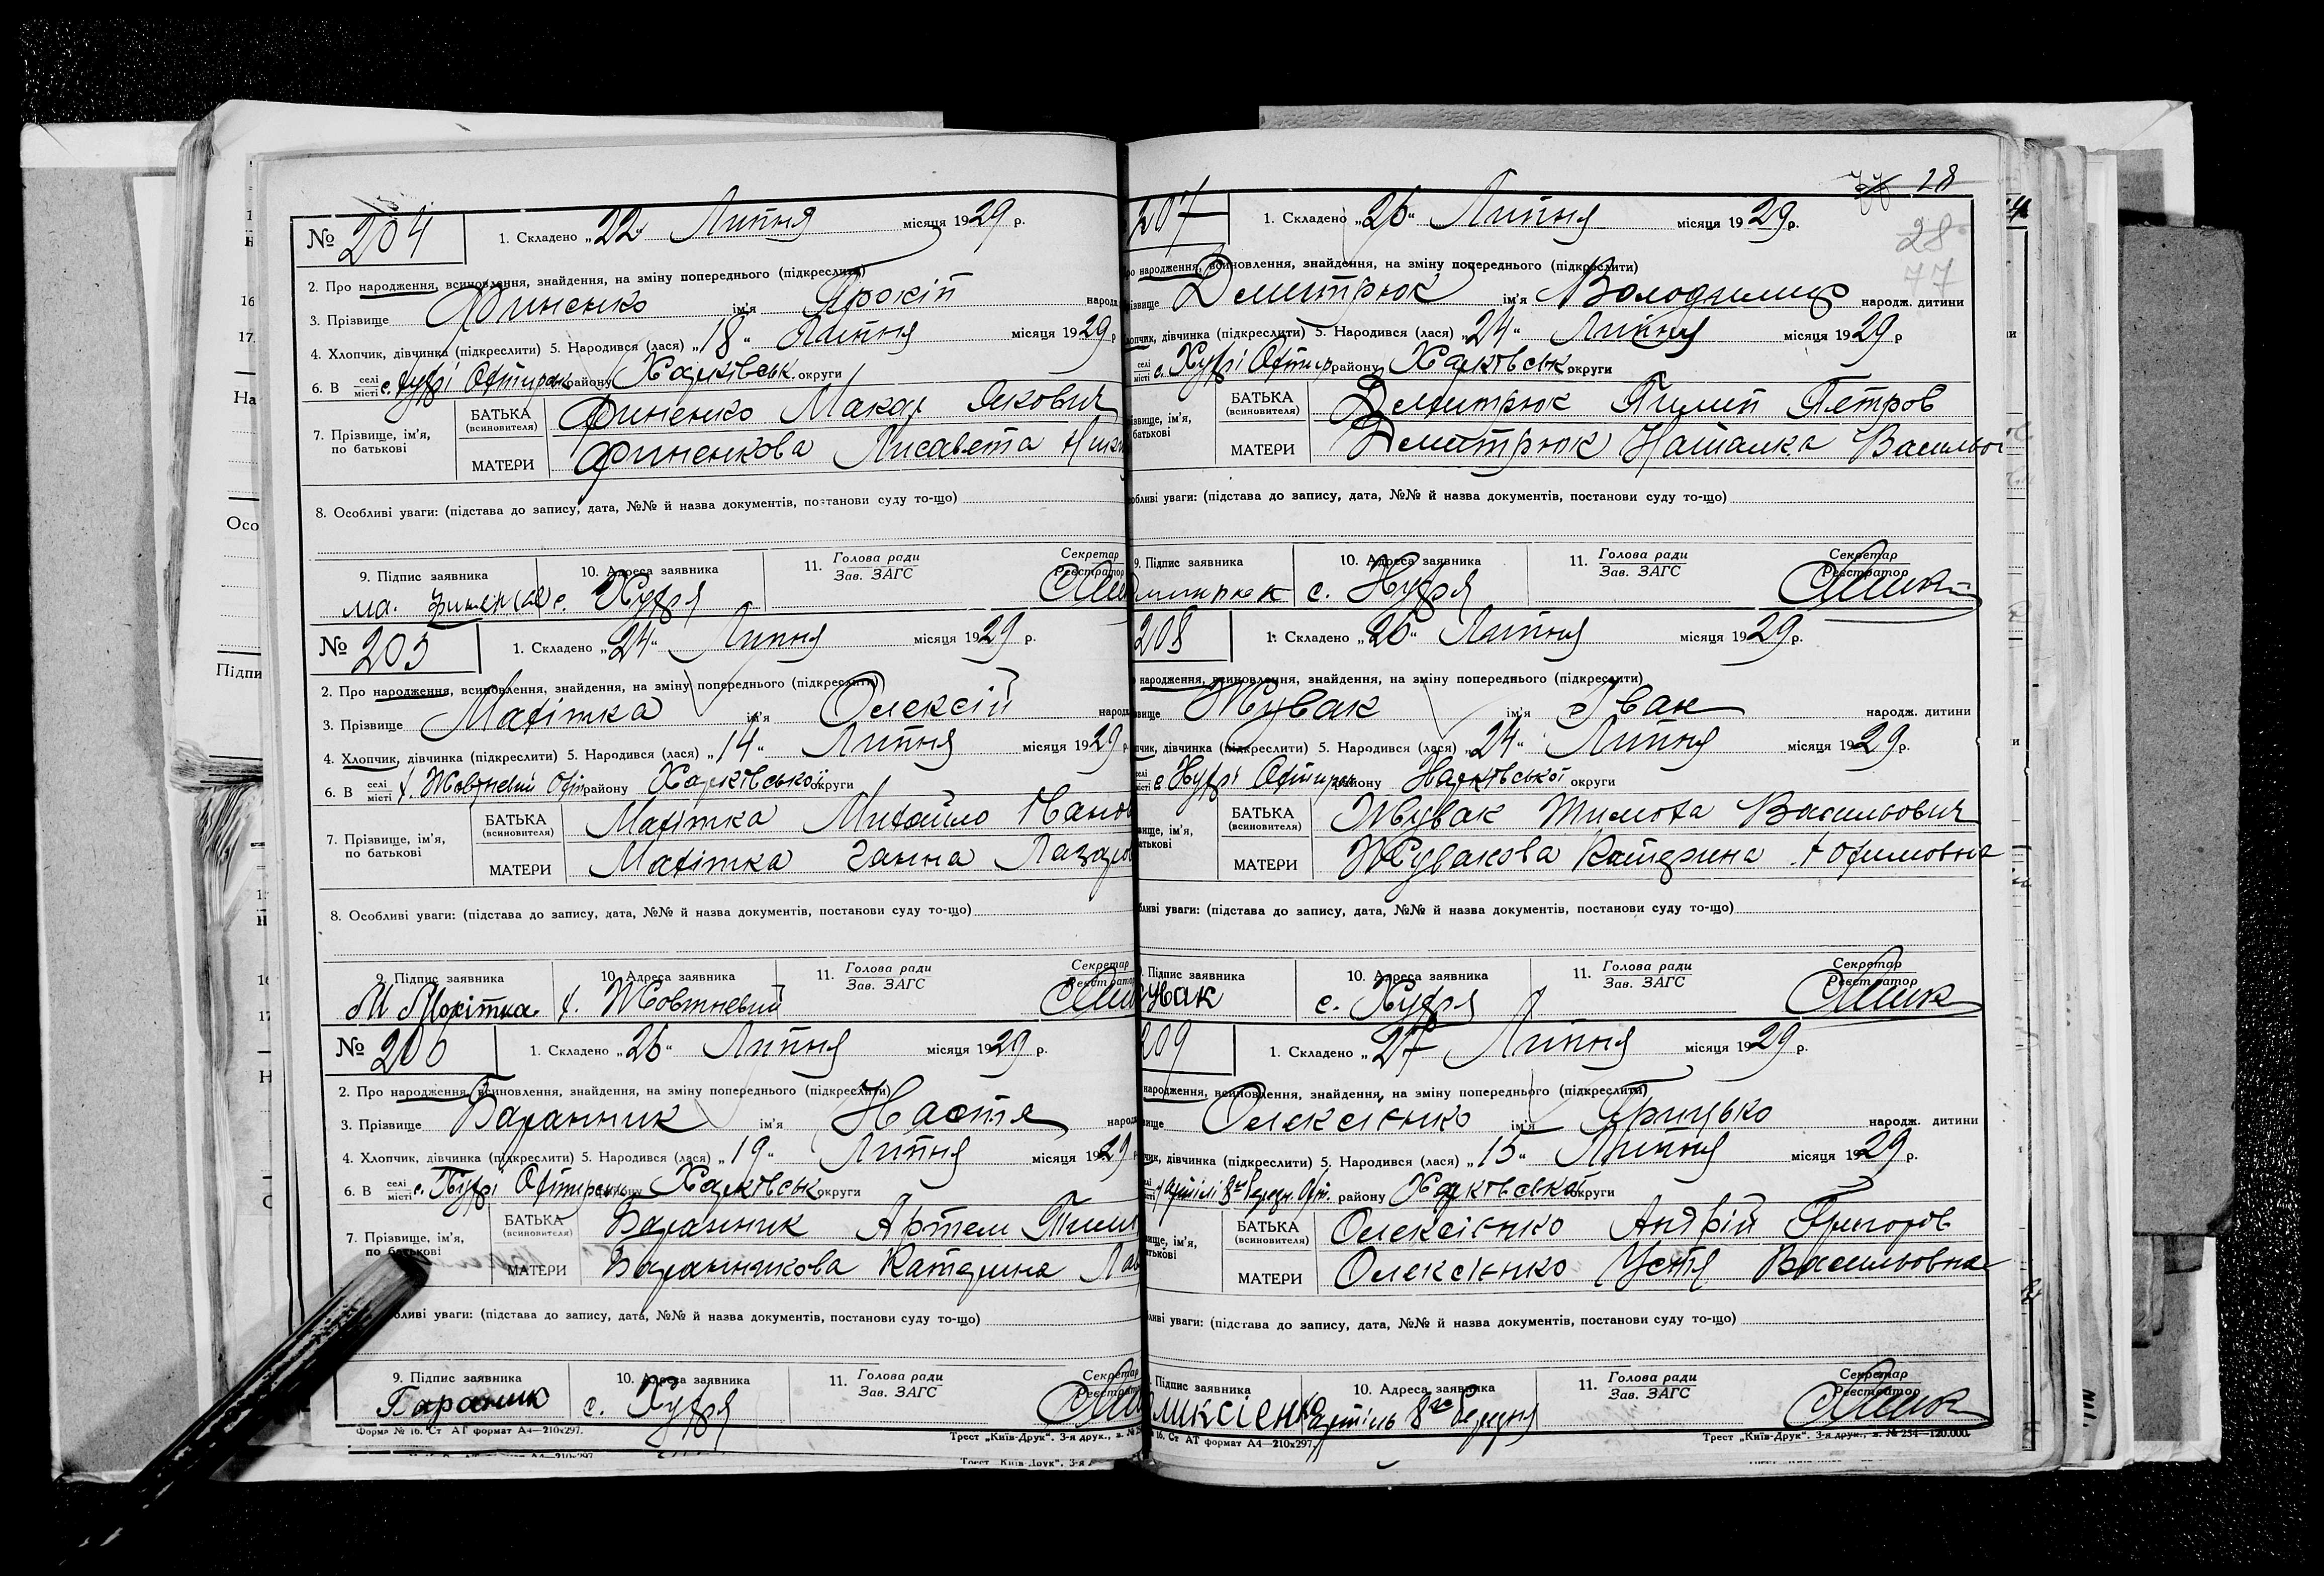 № 204
1. Складено „22“ Липня місяця 1929 р.
2. Про народження, всиновлення, знайдення, на зміну попереднього (підкреслити)
3. Прізвище Финенко ім'я Прокіп народ
4. Хлопчик, дівчинка (підкреслити) 5. Народився (лася) „18“ Липня місяця 1929 р
6. В селі місті с. Хухрі Охтирськ району Харківськ. округи
7. Прізвище, ім'я, по батькові
БАТЬКА (всиновителя) Финенко Макар Якович
МАТЕРИ Финенкова Лисавета
8. Особливі уваги: (підстава до запису, дата, №№ й назва документів, постанови суду то-що)
9. Підпис заявника 10. Адреса заявника 11. Голова ради Зав. ЗАГС Секретар Реєстратор
с. Хухря
№ 205
1. Складено „24“ Липня місяця 1929 р.
2. Про народження, всиновлення, знайдення, на зміну попереднього (підкреслити)
3. Прізвище Махітка ім'я Олексій народ
4. Хлопчик, дівчинка (підкреслити) 5. Народився (лася) „14“ Липня місяця 1929 р.
6. В селі місті х. Жовтневий Охт району Харківської округи
7. Прізвище, ім'я, по батькові
БАТЬКА (всиновителя) Махітка Михайло Іванов
МАТЕРИ Махітка Ганна Лазаров
8. Особливі уваги: (підстава до запису, дата, №№ й назва документів, постанови суду то-що)
9. Підпис заявника 10. Адреса заявника 11. Голова ради Зав. ЗАГС Секретар Реєстратор
М Махітка х. Жовтневий
№ 206
1. Складено „26“ Липня місяця 1929 р.
2. Про народження, всиновлення, знайдення, на зміну попереднього (підкреслити)
3. Прізвище Баранник ім'я Настя народ
4. Хлопчик, дівчинка (підкреслити) 5. Народився (лася) „19“ Липня місяця 1929 р
6. В селі місті с. Хухрі Охтирськ Харківськ округи
7. Прізвище, ім'я, по батькові
БАТЬКА (всиновителя) Баранник Артем
МАТЕРИ Баранникова Катерина Лав
ливі уваги: (підстава до запису, дата, №№ й назва документів, постанови суду то-що)
9. Підпис заявника 10. Адреса заявника 11. Голова ради Зав. ЗАГС Секретар Реєстратор
Бараник с. Хухря
Форма № 16. Ст АТ формат А4—210х297.
Трест „Київ-Друк“. 3-я друк., з. №
28
28
77
207
1. Складено „26“ Липня місяця 1929 р.
ро народження, всиновлення, знайдення, на зміну попереднього (підкреслити)
різвище Демитрюк ім'я Володимир народж. дитини
лопчик, дівчинка (підкреслити) 5. Народився (лася) „24“ Липня місяця 1929 р
селі місті с. Хухрі Охтир району Харківськ округи
різвище, ім'я, батькові
БАТЬКА (всиновителя) Демитрюк Пилип Петров
МАТЕРИ Демитрюк Наталка Васильо
обливі уваги: (підстава до запису, дата, №№ й назва документів, постанови суду то-що)
9. Підпис заявника 10. Адреса заявника 11. Голова ради Зав. ЗАГС Секретар Реєстратор
митрюк с. Хухря
208
1. Складено „26“ Липня місяця 1929 р.
народження, всиновлення, знайдення, на зміну попереднього (підкреслити)
вище Жувак ім'я Іван народж. дитини
пчик, дівчинка (підкреслити) 5. Народився (лася) „24“ Липня місяця 1929 р.
селі місті с Хухрі Охтирськ району Харківської округи
вище, ім'я, атькові
БАТЬКА (всиновителя) Жувак Тимоха Васильович
МАТЕРИ Жувакова Катерина Юхимовна
бливі уваги: (підстава до запису, дата, №№ й назва документів, постанови суду то-що)
Підпис заявника 10. Адреса заявника 11. Голова ради Зав. ЗАГС Секретар Реєстратор
увак с. Хухря
209
1. Складено „27“ Липня місяця 1929 р.
народження, всиновлення, знайдення, на зміну попереднього (підкреслити)
вище Олексієнко ім'я Грицько народж. дитини
чик, дівчинка (підкреслити) 5. Народився (лася) „15“ Липня місяця 1929 р.
артілі 8го Березн. Охт. району Харківської округи
вище, ім'я, атькові
БАТЬКА (всиновителя) Олексієнко Андрій Григорів
МАТЕРИ Олексієнко Устя Васильовна
ливі уваги: (підстава до запису, дата, №№ й назва документів, постанови суду то-що)
Підпис заявника 10. Адреса заявника 11. Голова ради Зав. ЗАГС Секретар Реєстратор
ликсієнко Артіль 8го Березня
16. Ст АТ формат А4—210х297.
Трест „Київ-Друк“. 3-я друк., з. № 254—120.000.